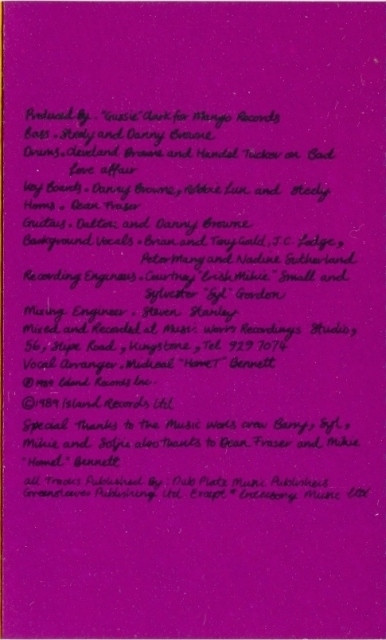 Produced By - "Gussie" Clark for Mango Records
Bass - Steely and Danny Browne
Drums - Cleveland Browne and Handel Tucker on Bad
Love affair
Key Boards - Danny Browne, Robbie Lun and Steely
Horns - Dean Fraser
Guitars - Dalton and Danny Browne
Background Vocals - Brian and Tony Gold, J.C. Lodge,
Peter Many and Nadine Sutherland
Recording Engineers - Courtney "Mikie" Small and
Sylvester "Syl" Gordon
Mixing Engineer - Steven Stanley
Mixed and Recorded at Music Works Recordings Studio,
56, Slipe Road, Kingstone, Tel 929 7074
Vocal Arranger - Micheal "Home T" Bennett
℗ 1989 Island Records Inc.
© 1989 Island Records Ltd
Special Thanks to the Music Works crew Barry, Syl,
Mikie and also thanks to Dean Fraser and Mikie
"Home T" Bennett
All Tracks Published By: Dub Plate Music Publishers
Greensleeves Publishing Ltd Except * Music Ltd